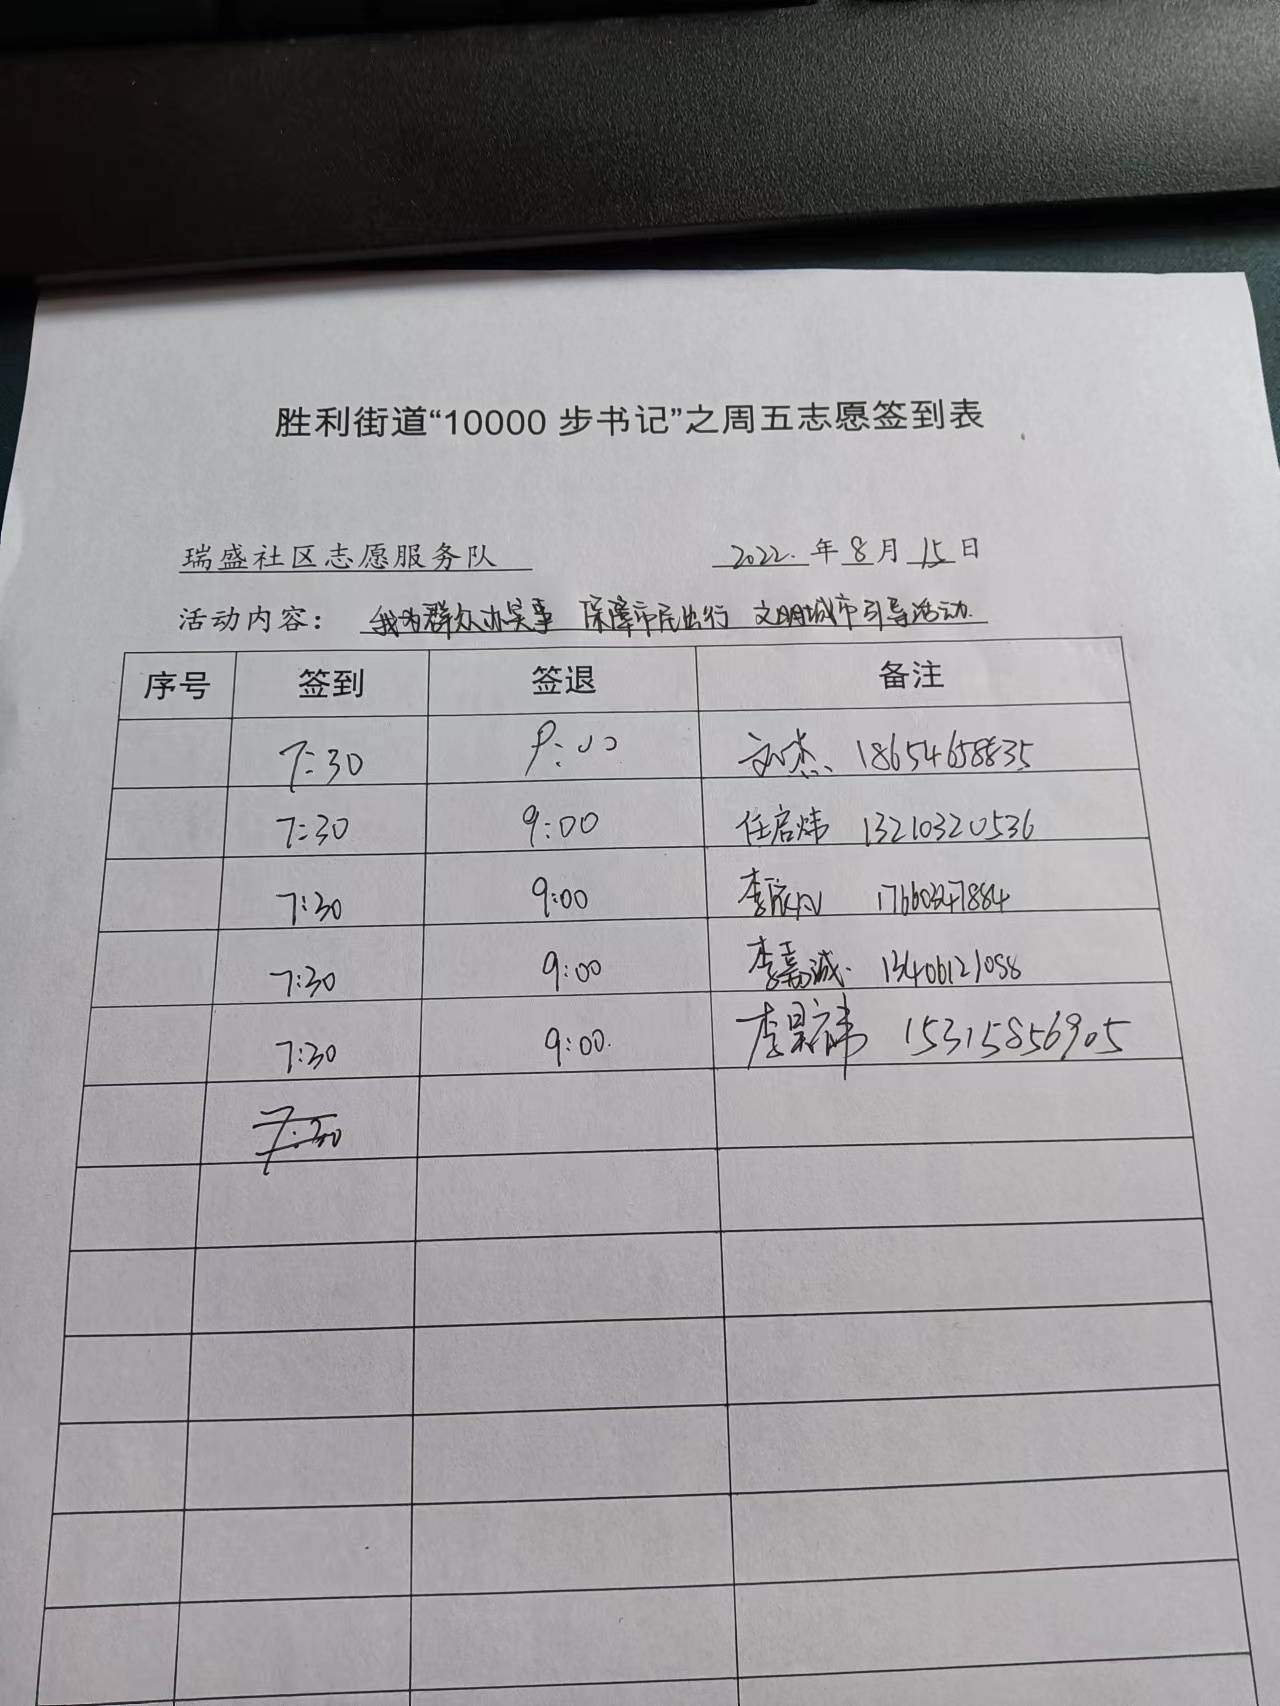 胜利街道“10000 步书记”之周五志愿签到表
瑞盛社区志愿服务队 2022. 年 8 月 15 日
活动内容： 我为群众办实事 保障市民出行 文明城市引导活动.
序号 签到 签退 备注
7:30 9:00 刘杰、 18654658835
7:30 9:00 任启炜 13210320536
7:30 9:00 李
7:30 9:00 李嘉诚. 13406121088
7:30 9:00. 李昊祎 15315856905
7:30